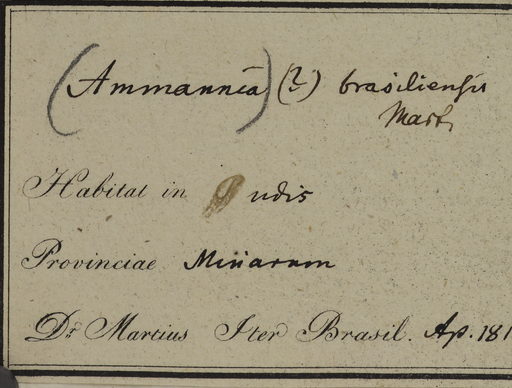 (Ammannia) (?) brasiliensis
Mart.
Habitat in udis
Provinciae Minarum
Dr Martius Iter Brasil. Ap. 181